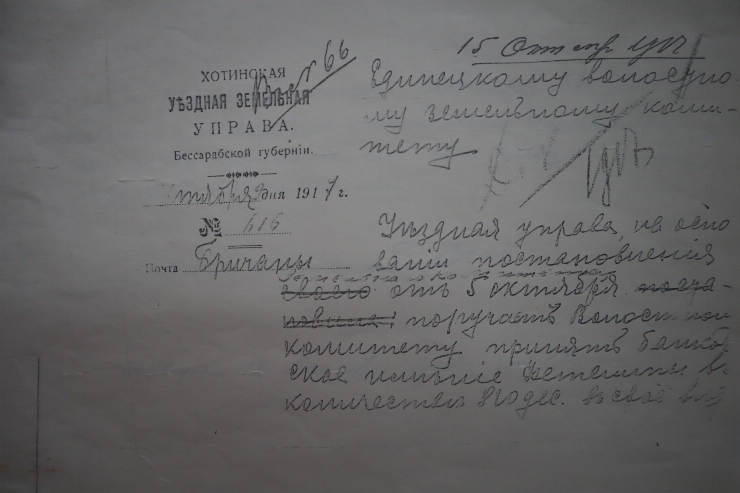 15 Октяр 1917
66
ХОТИНСКАЯ
УѢЗДНАЯ ЗЕМЕЛЬНАЯ
УПРАВА.
Бессарабской губерніи.
Октября дня 1917 г.
№ 616
Почта Бричаны
Единецкому волостно-
му земельному коми-
тету
Уѣздная управа, на осно
ваніи постановленія
своего отъ 5 октября
поручаетъ Волостному
комитету принять банков
ское имѣніе
количествѣ дес. въ свое